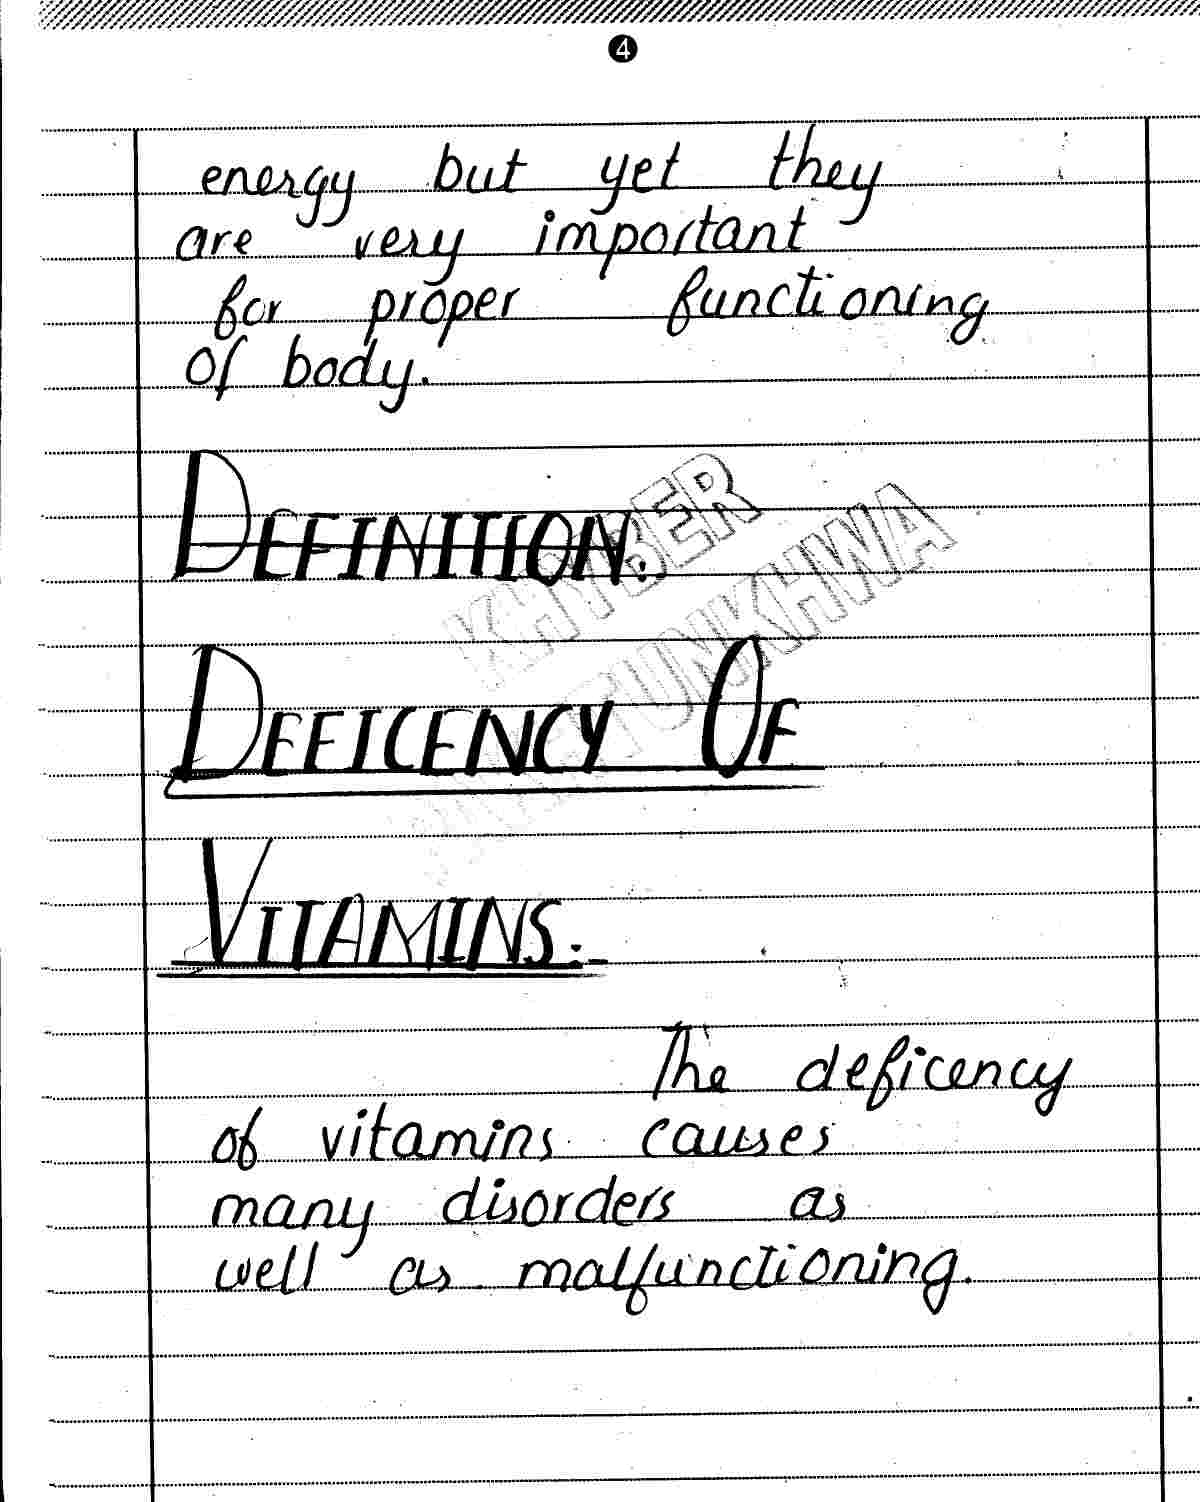 4
energy but yet they
are very important
for proper functioning
of body.
DEFINITION.
KHYBER
PAKHTUNKHWA
DEFICENCY OF
VITAMINS:-
The deficency
of vitamins causes
many disorders as
well as malfunctioning.